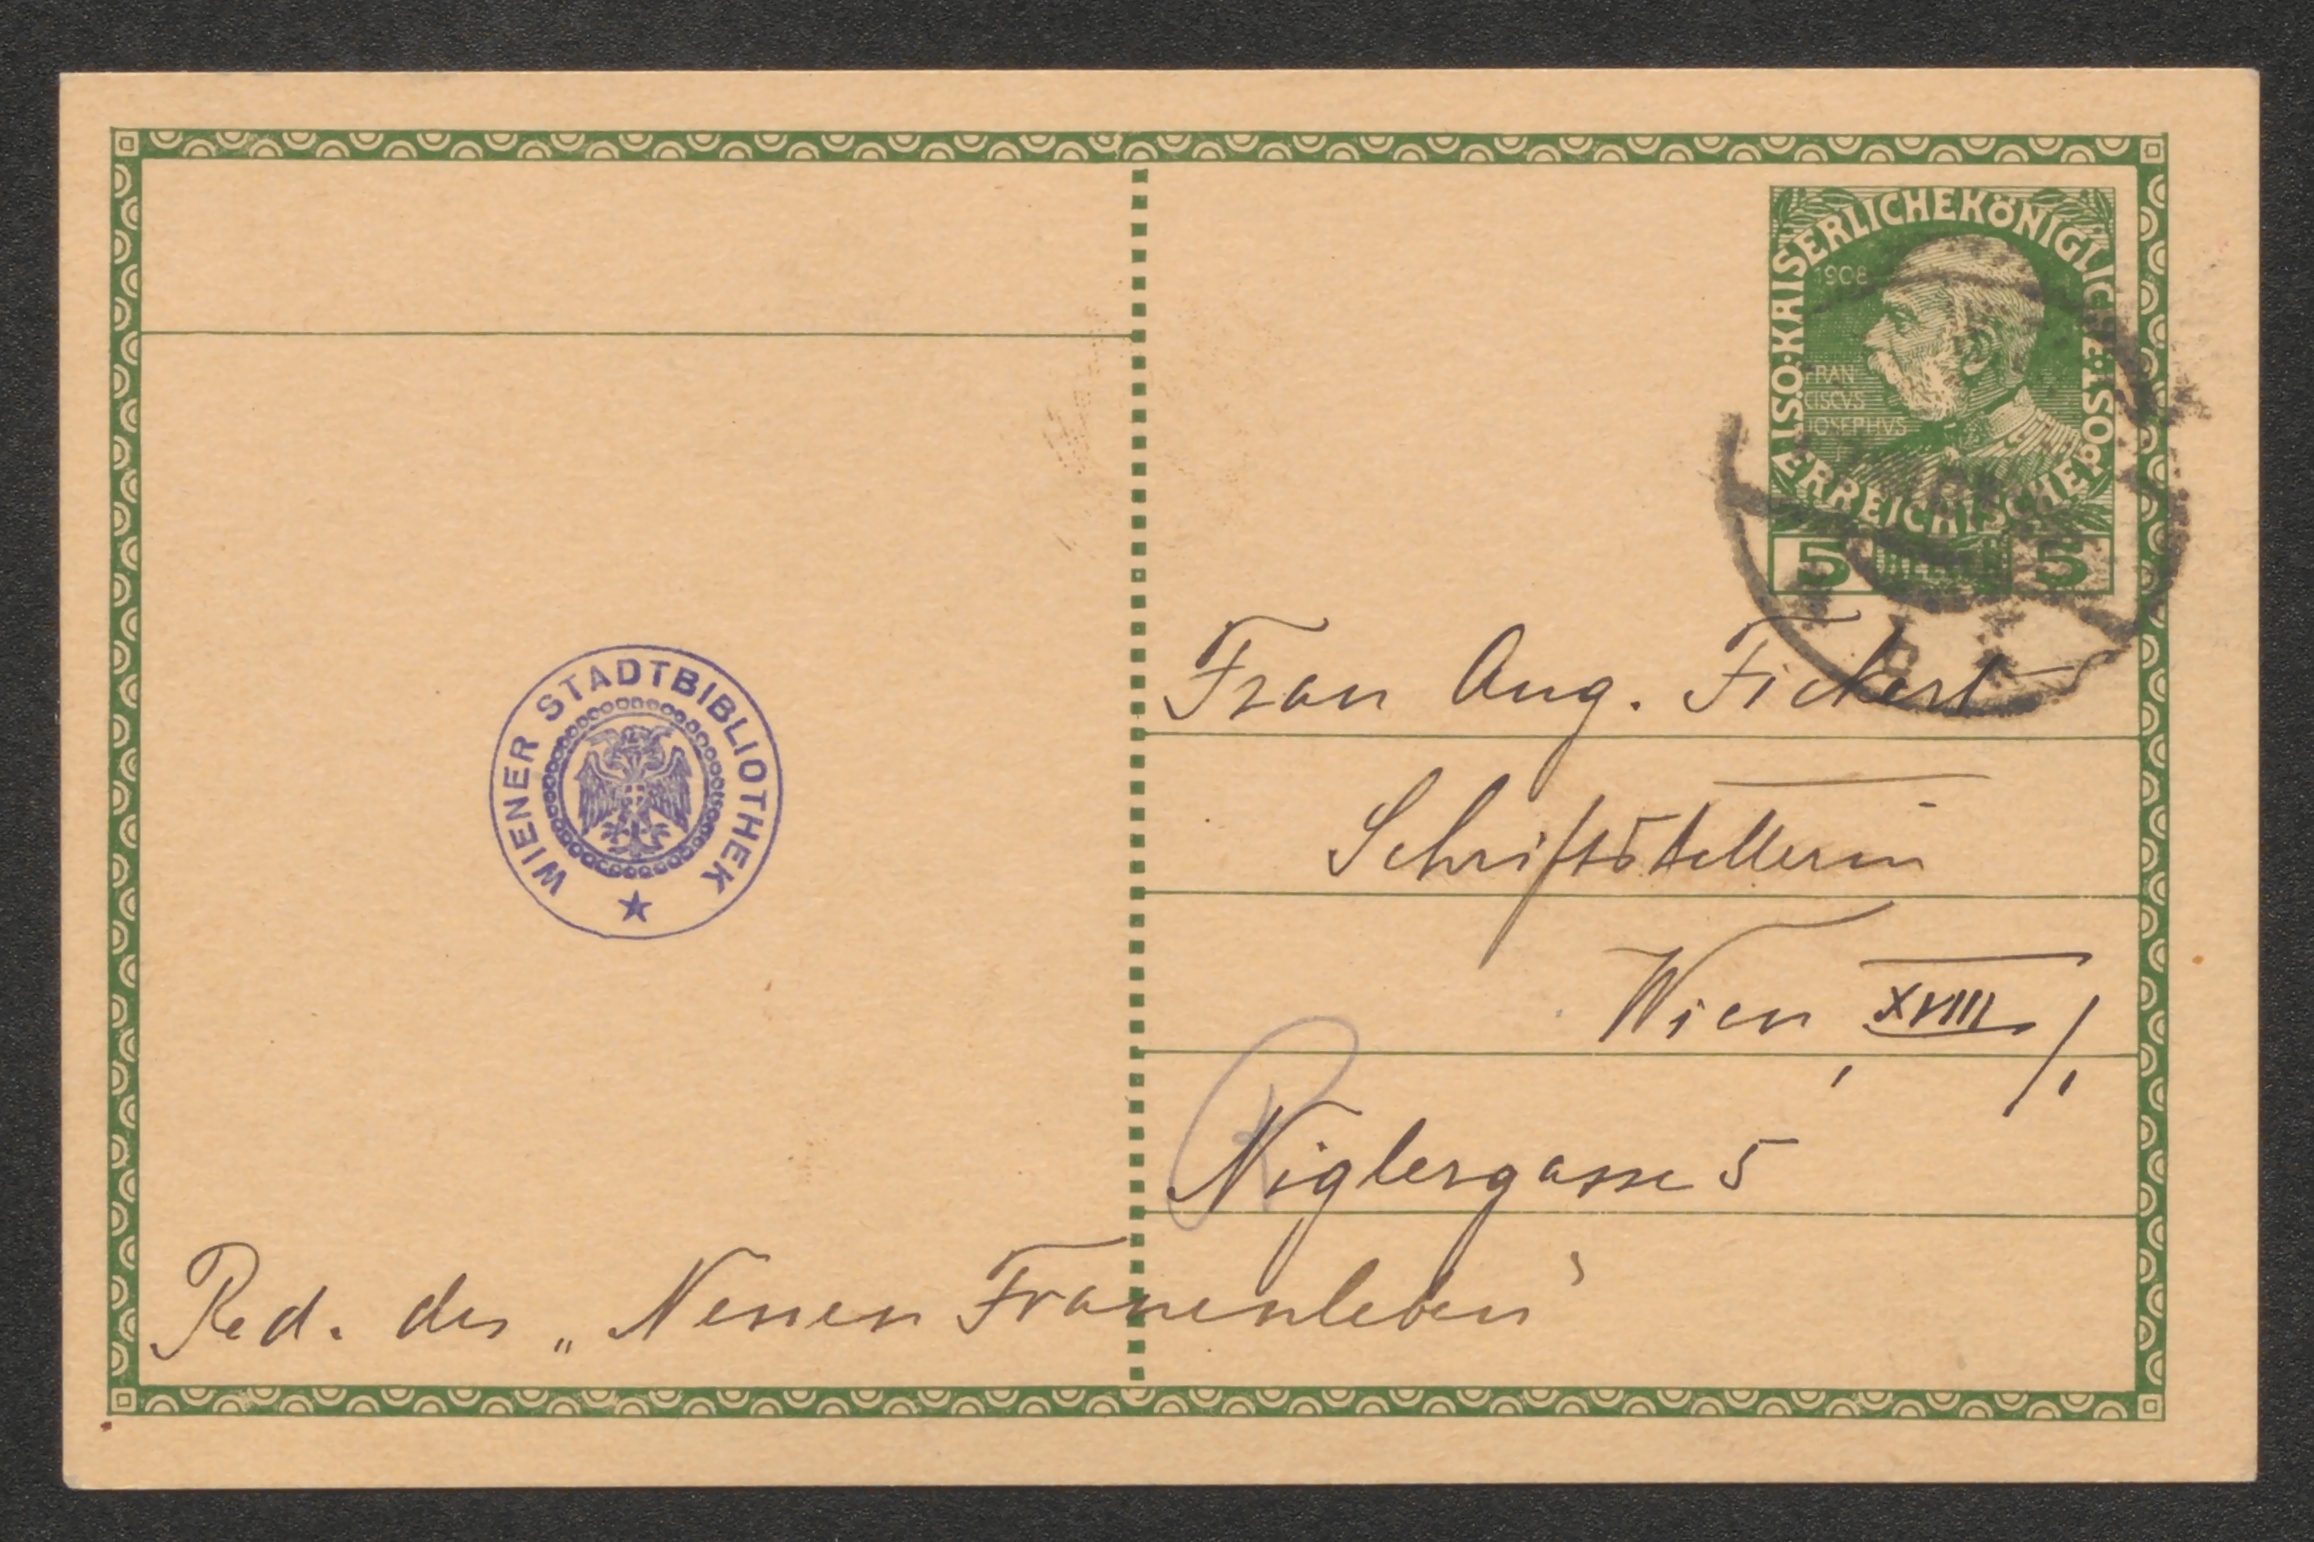 KAISERLICHE KÖNIGLICHE ÖSTERREICHISCHE POST
1908
FRAN
CISCVS
IOSEPHVS
5 HELLER 5
Frau Aug. Fickert
Schriftstellerin
Wien, XVIII/1
Niglergasse 5
Red. des „Neuen Frauenleben“
WIENER STADTBIBLIOTHEK